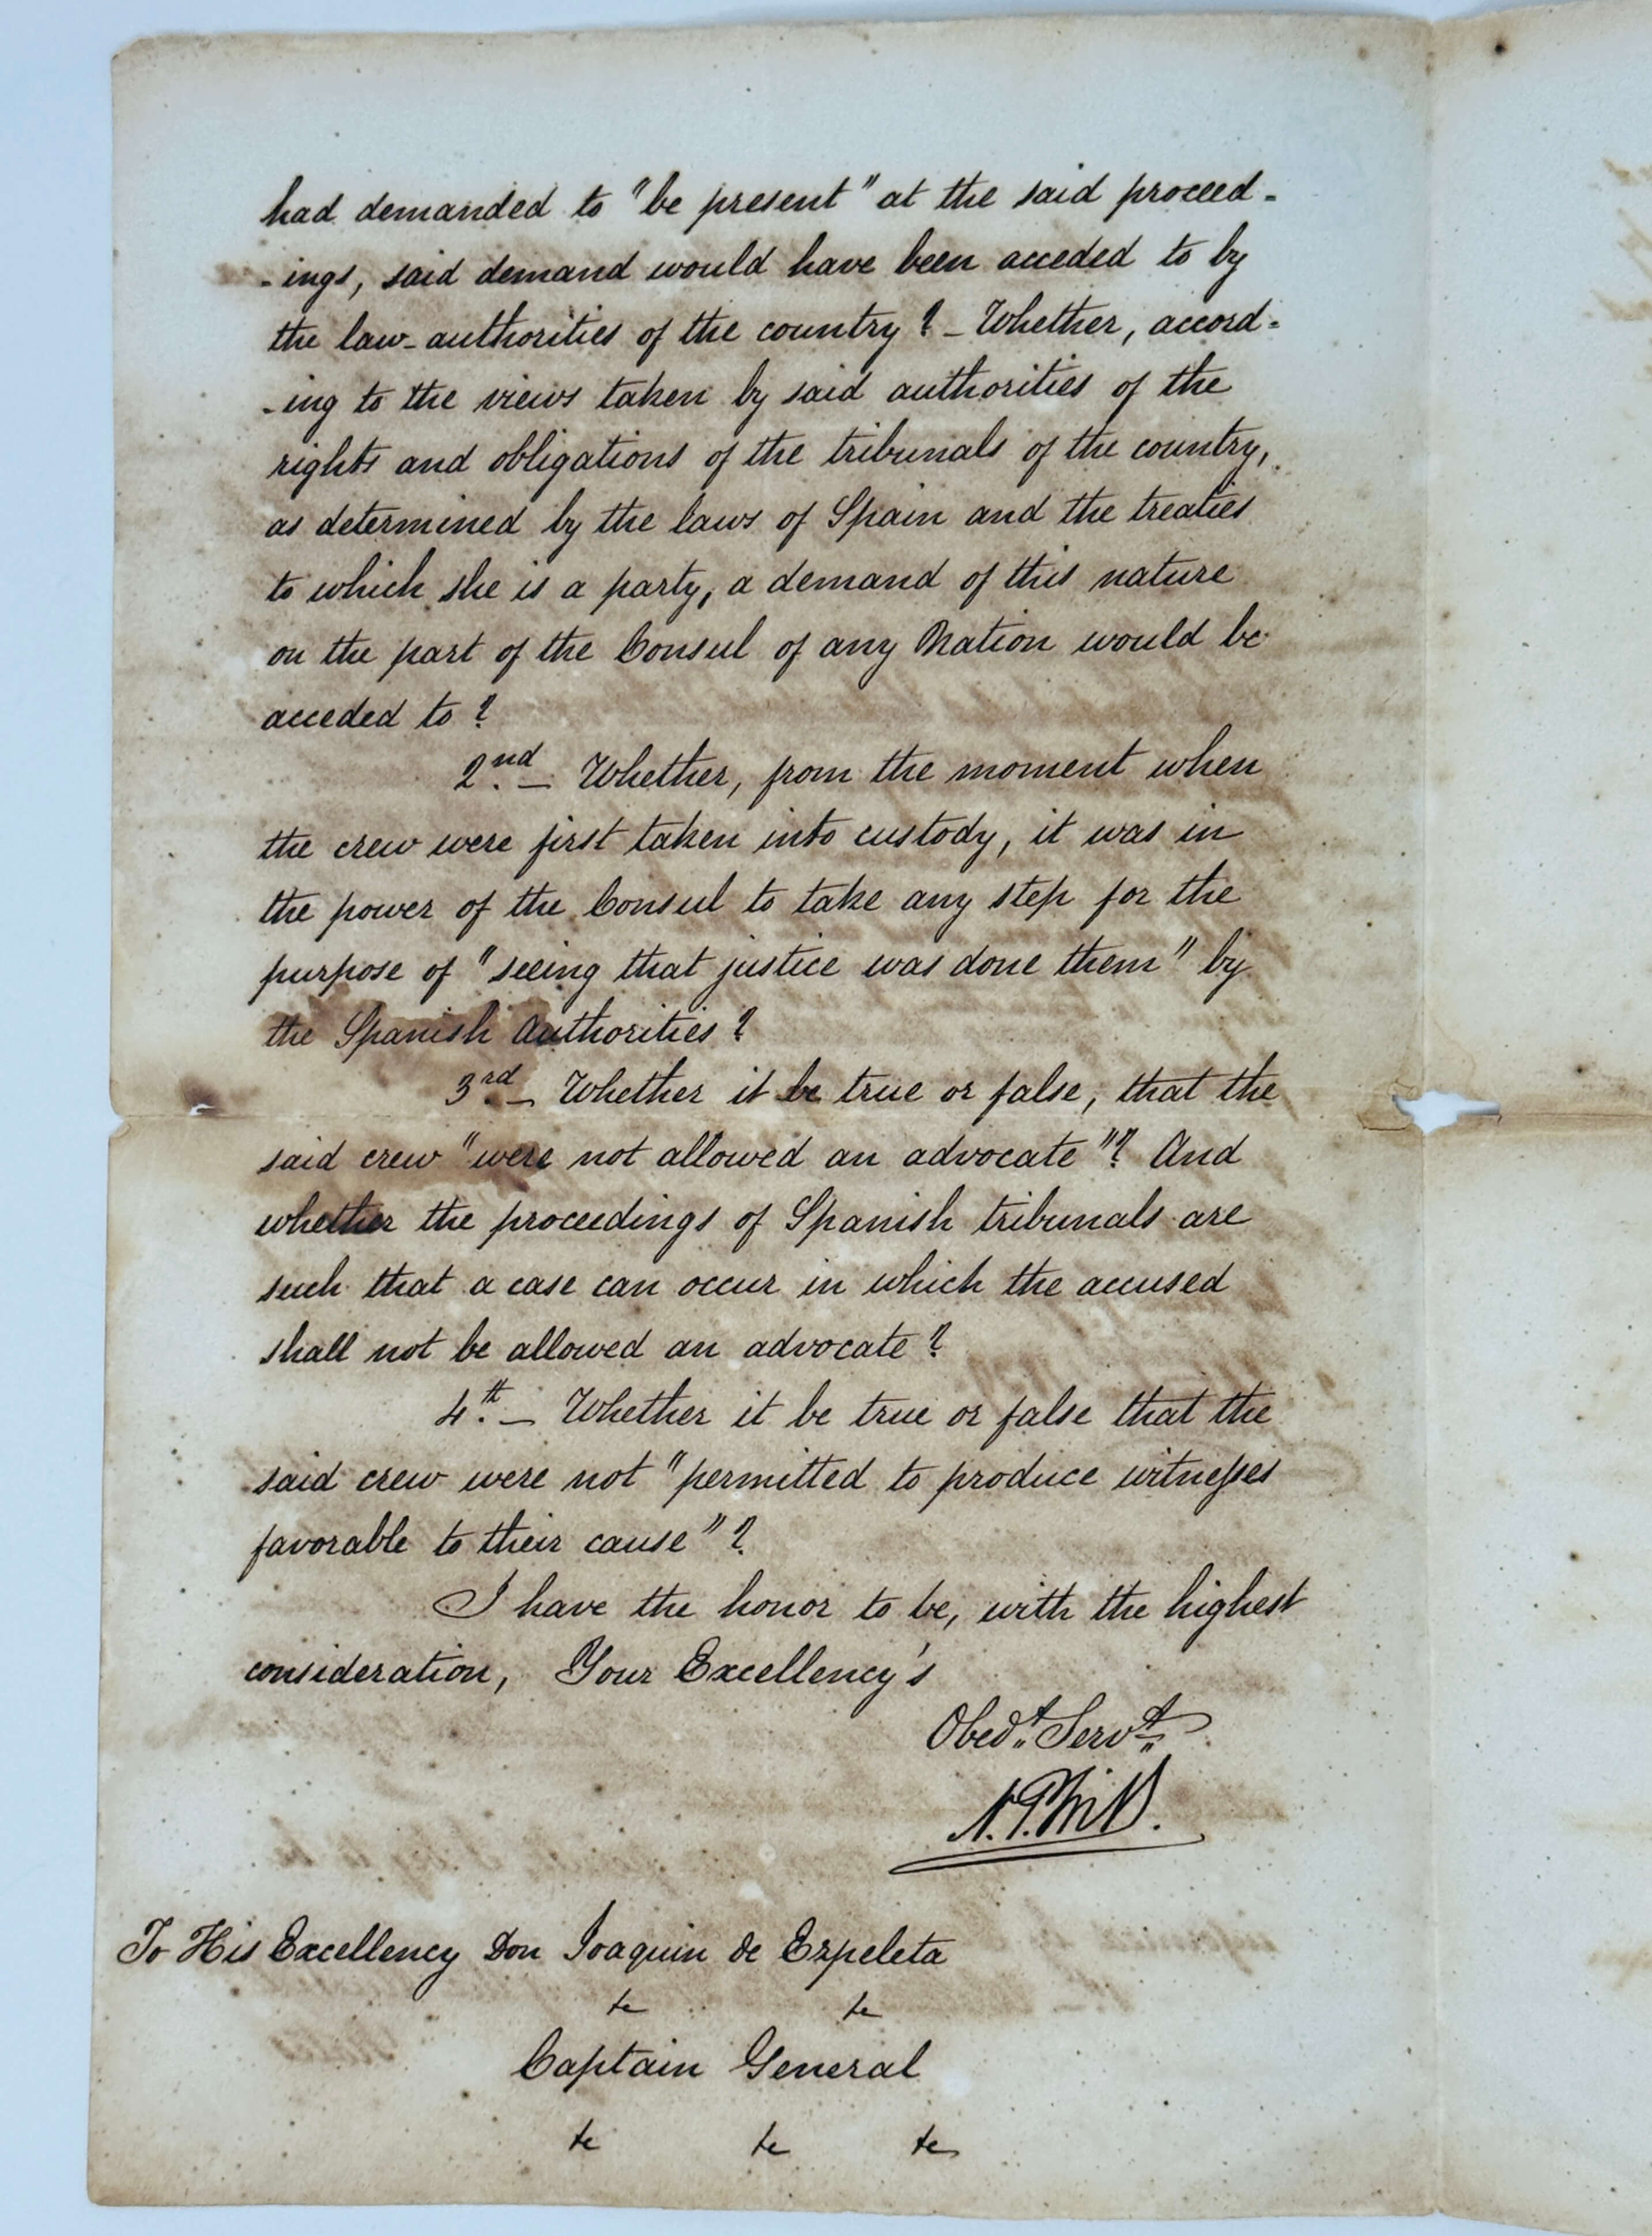 had demanded to "be present" at the said proceed-
-ings, said demand would have been acceded to by
the law-authorities of the country? - Whether, accord-
-ing to the views taken by said authorities of the
rights and obligations of the tribunals of the country,
as determined by the laws of Spain and the treaties
to which she is a party, a demand of this nature
on the part of the Consul of any Nation would be
acceded to?
2nd. - Whether, from the moment when
the crew were first taken into custody, it was in
the power of the Consul to take any step for the
purpose of "seeing that justice was done them" by
the Spanish Authorities?
3rd. - Whether it be true or false, that the
said crew "were not allowed an advocate"? And
whether the proceedings of Spanish tribunals are
such that a case can occur in which the accused
shall not be allowed an advocate?
4th. - Whether it be true or false that the
said crew were not "permitted to produce witnesses
favorable to their cause"?
I have the honor to be, with the highest
consideration, Your Excellency's
Obedt. Servt.
To His Excellency Don Joaquin de Ezpeleta
&c &c
Captain General
&c &c &c